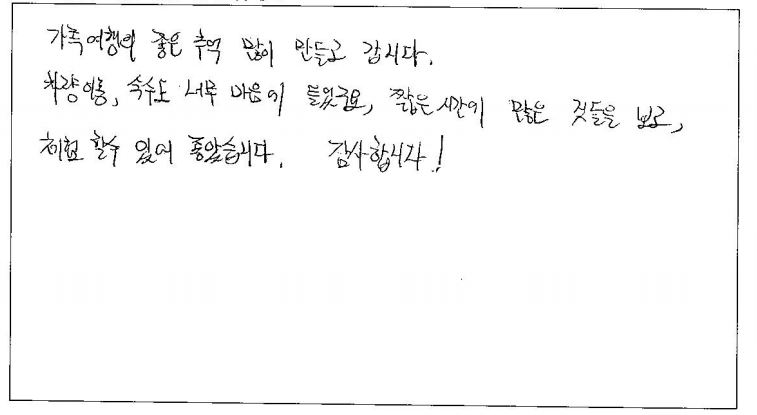 가족여행의 좋은 추억 많이 만들고 갑니다.
차량이동, 숙소도 너무 마음에 들었구요, 짧은 시간에 많은 것들을 보고,
체험 할수 있어 좋았습니다. 감사합니다!